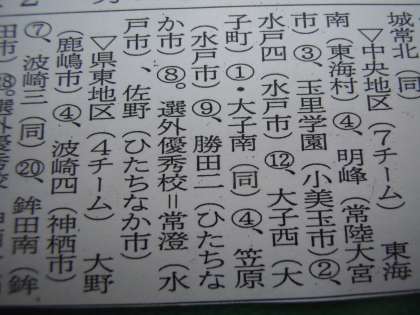 城常北（同）
▽中央地区（７チーム）　東海
南（東海村）④、明峰（常陸大宮
市）③、玉里学園（小美玉市）②、
水戸四（水戸市）⑫、大子西（大
子町）①・大子南（同）④、笠原
（水戸市）⑨、勝田二（ひたちな
か市）⑧。選外優秀校＝常澄（水
戸市）、佐野（ひたちなか市）
▽県東地区（４チーム）　大野
（鹿嶋市）④、波崎四（神栖市）
⑦、波崎三（同）⑳、鉾田南（鉾
田市）⑱。選外優秀校